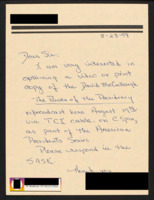 8-23-99
Dear Sir,
I am very interested in
obtaining a video or print
copy of the David McCullough
The Power of the Presidency
rebroadcast here August 19th
via TCI cable on CSpan
as part of the American
Presidents Series
Please respond in the
SASE
Thank you